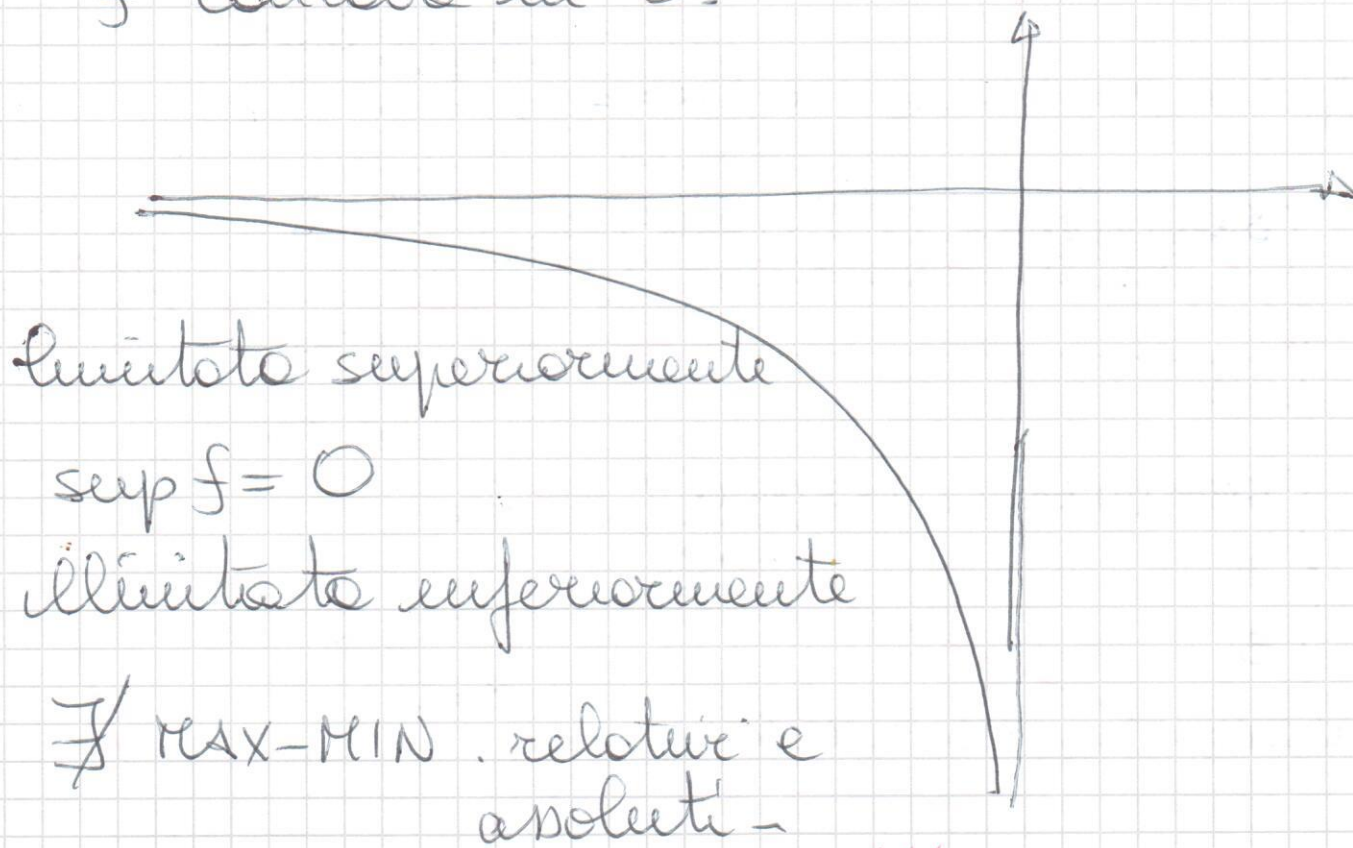 f concava in
limitata superiormente
sup f = 0
illimitata inferiormente
∄ MAX-MIN. relativi e
assoluti -